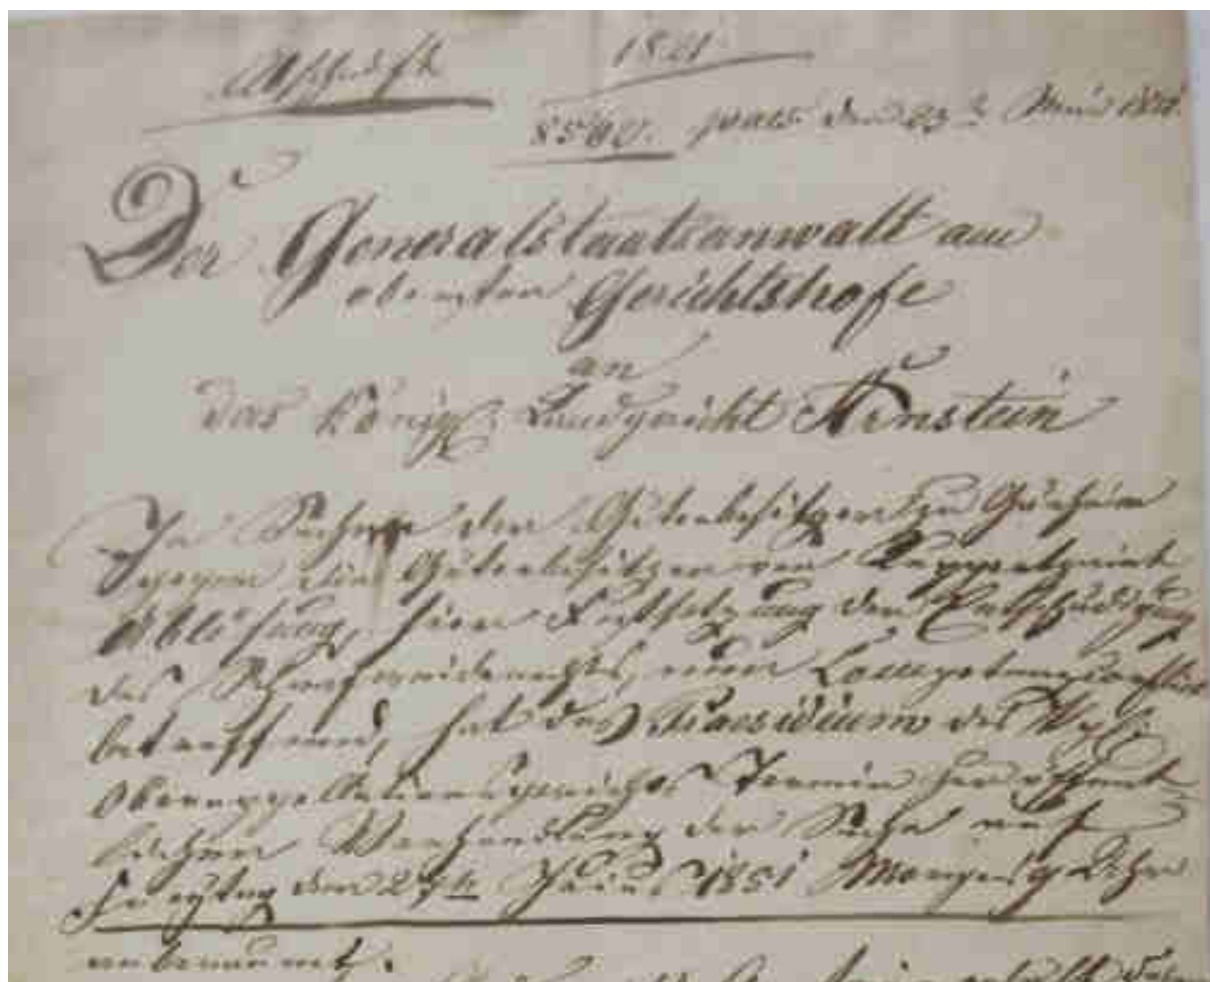 Abschrift 1851.
8560. praes. den 23. Mai 1851.
Der Generalstaatsanwalt am
obersten Gerichtshofe
an
das Königl. Landgericht Arnstein
In Sachen der Gutsbesitzer zu
gegen die Gutsbesitzer von
Ablösung, hier Festsetzung der Entschädigung
des Schafweiderechts, nun Competenzconflict
betreffend, hat das Praesidium des kgl.
Oberappellationsgerichts Termin zur öffent-
lichen Verhandlung der Sache auf
Freytag den 27ten Juni 1851 Morgens 9 Uhr
anberaumt.